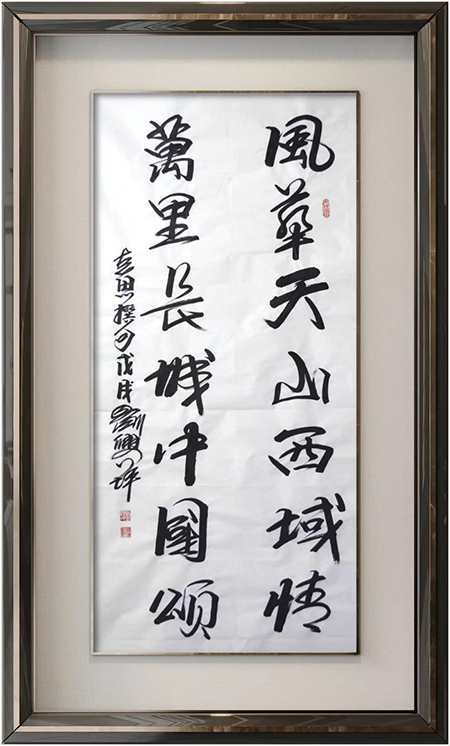 風華天山西域情
萬里長城中國頌
戊戌劉興